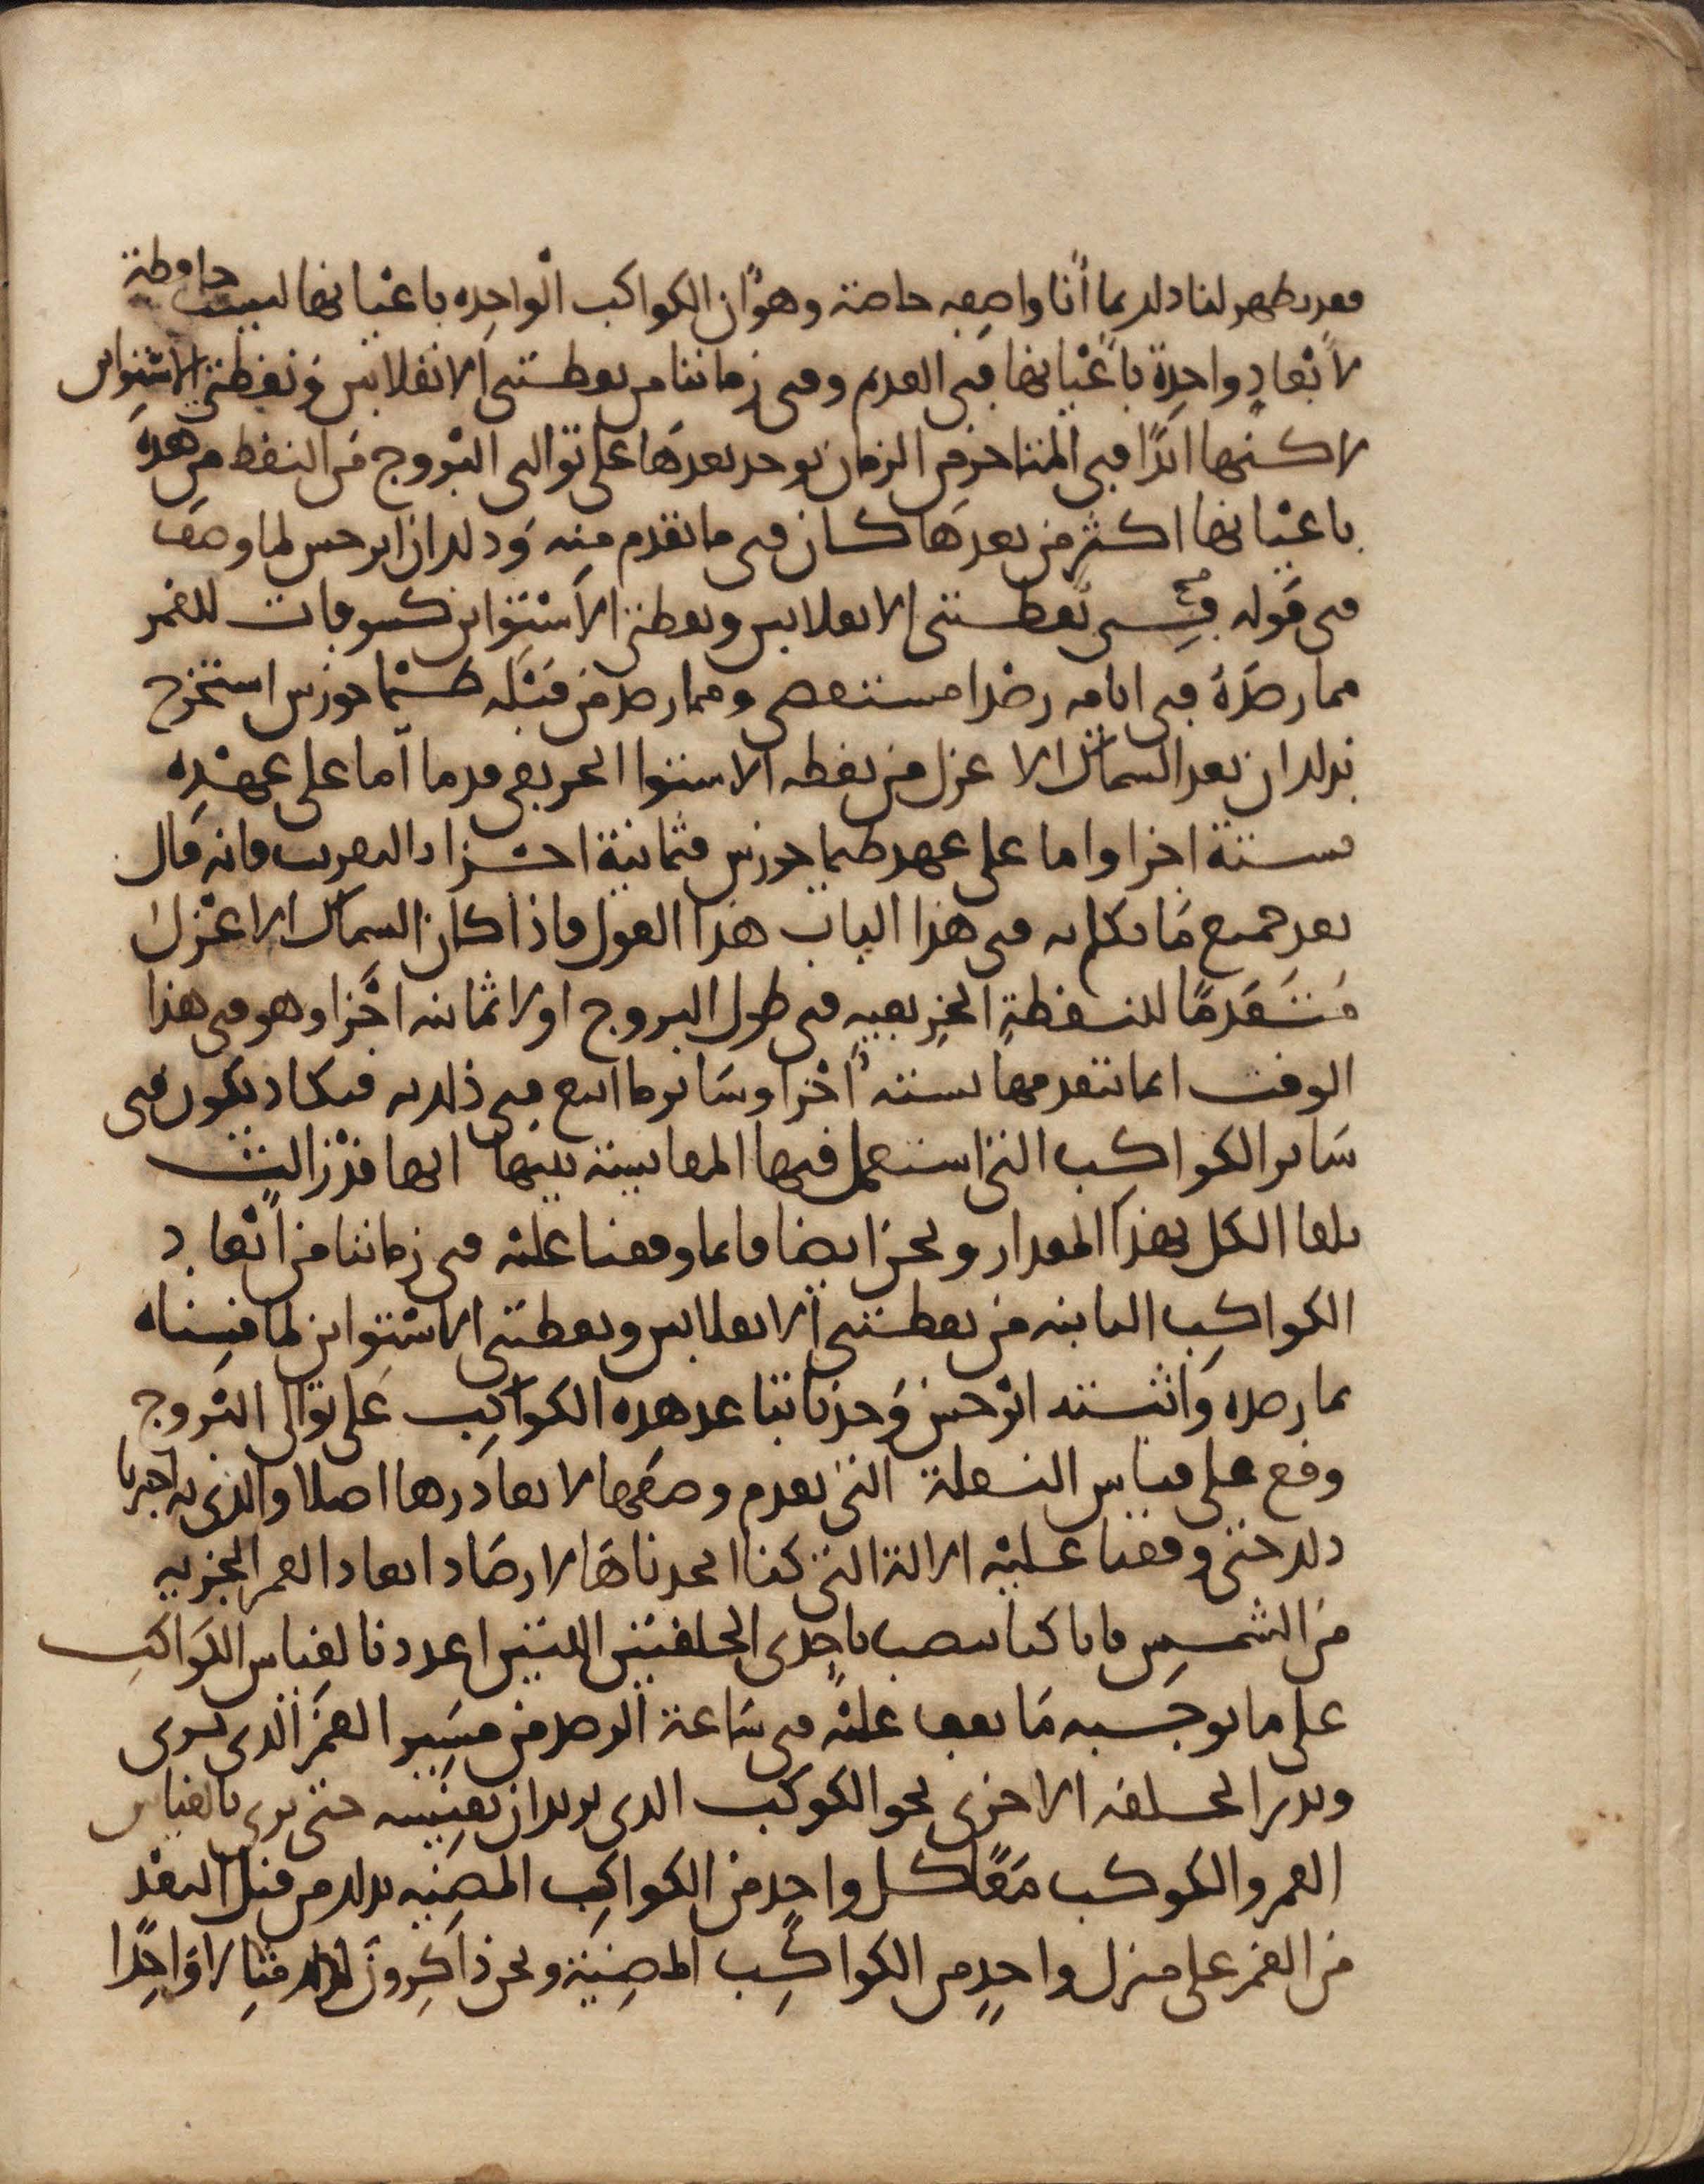 فقد يظهر لنا ذلك بما أنا واصفه خاصة وهو أن الكواكب الواحدة باعيانها ليست حافظة
لأبعاد واحدة باعيانها في القديم وفي زماننا من نقطتي الانقلابين ونقطتي الاستواين
لاكنها ابدا في المتاخر من الزمان يوجد بعدها على توالي البروج من النقط من هذه
باعيانها اكثر من بعدها كان في ما تقدم منه وذلك ان ابرخس لما وصف
في قوله في نقطتي الانقلابين ونقطتي الاستواين كسوفات للقمر
مما رصده في ايامه رصدا مستقصى ومما رصد من قبله طيماخورس استخرج
بذلك ان بعد السماك الاعزل من نقطة الاستوا الخريفي قدما اما على عهده
فستة اجزا واما على عهد طيماخورس فثمانية اجزا بالتقريب فانه قال
بعد جميع ما تكلم به في هذا الباب هذا القول فاذا كان السماك الاعزل
متقدما للنقطة الخريفية في طول البروج اولا ثمانية اجزا وهو في هذا
الوقت انما يتقدمها بستة اجزا وساير ما اتبع في ذلك به فيكاد يكون في
ساير الكواكب التي استعمل فيها المقايسة بينها انها قد زالت
تلقا الكل بهذا المقدار ونحن ايضا فانما وقفنا عليه في زماننا من ابعاد
الكواكب الثابتة من نقطتي الانقلابين ونقطتي الاستواين لما قسناه
بما رصده واثبته ابرخس وجدنا تباعد هذه الكواكب على توالي البروج
وقع على قياس النقلة التي تقدم وصفها لا يغادرها اصلا والذي به اخبرنا
ذلك حتى وقفنا عليه الالة التي كنا اتخذناها لارصاد ابعاد القمر الجزيية
من الشمس فانا كنا ننصب باحدى الحلقتين اللتين اعددنا لقياس الكواكب
على ما يوجبه ما نقف عليه في ساعة الرصد من مسير القمر الذي يرى
وندير الحلقة الاخرى نحو الكوكب الذي نريد ان نقيسه حتى يرى بالقياس
القمر والكوكب معا كل واحد من الكواكب المضيه بذلك من قبل البعد
من القمر على منزل واحد من الكواكب المضيية ونحن ذاكرون لذلك مثالا واحدا